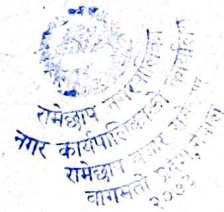 रामेछाप नगरपालिका
नगर कार्यपालिकाको कार्यालय
रामेछाप
बागमती प्रदेश, नेपाल
२०७३